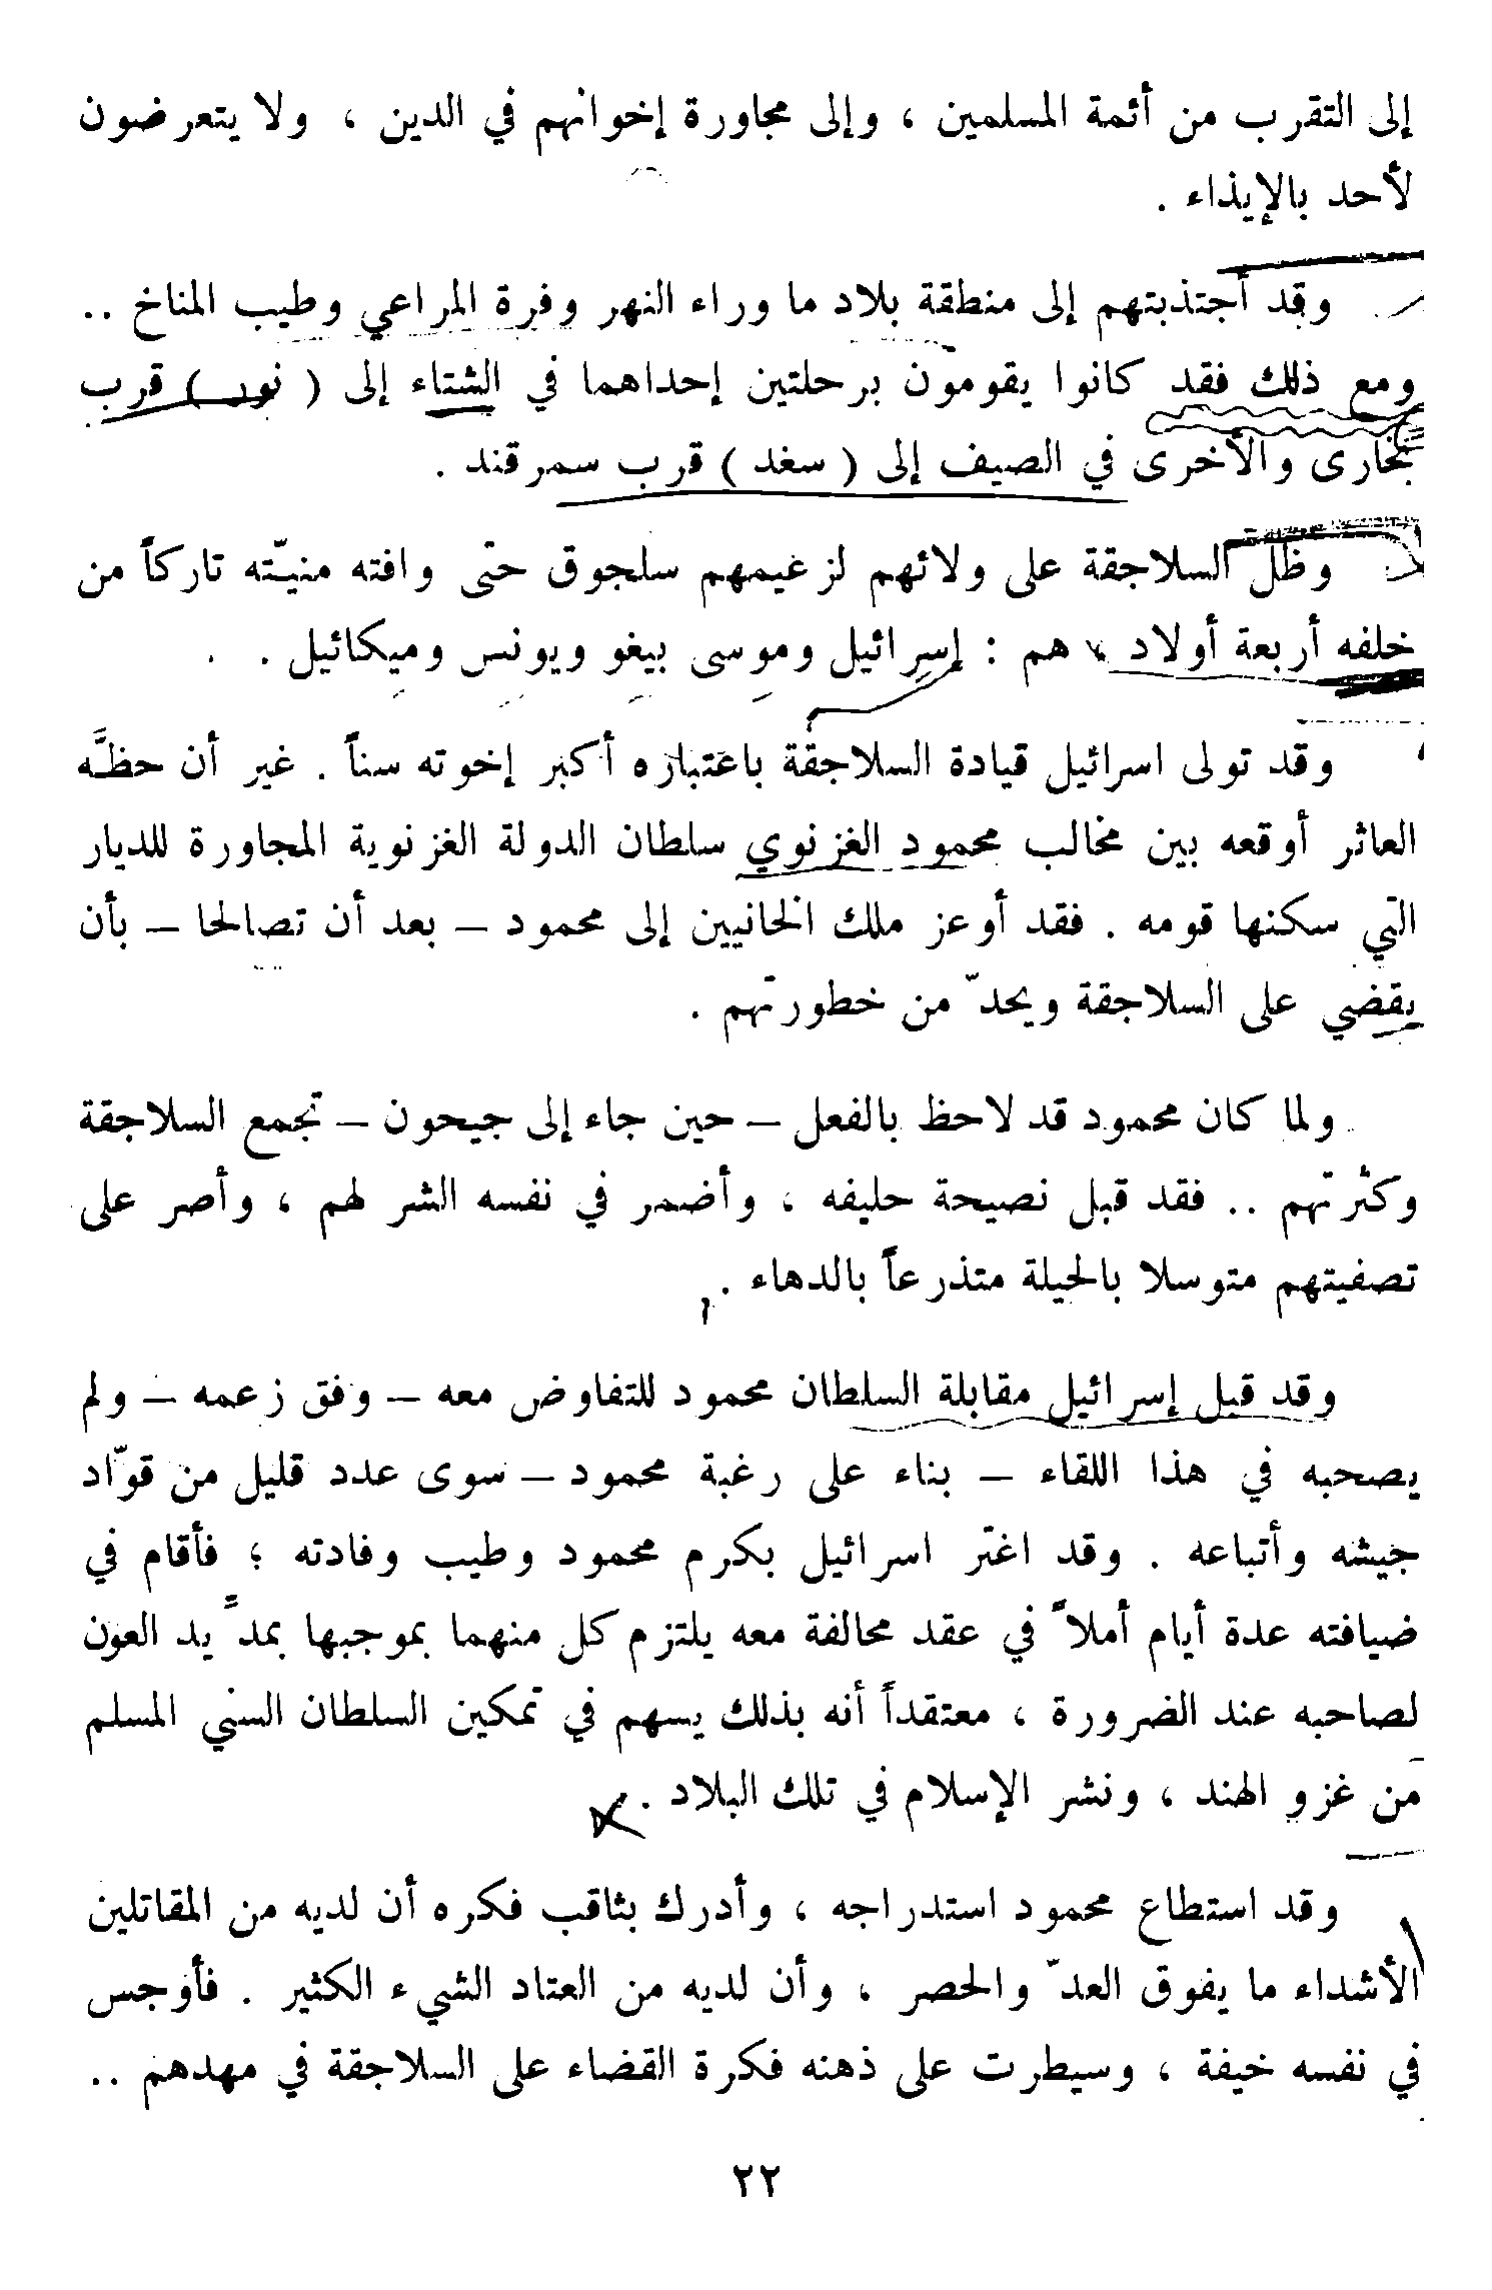 إلى التقرب من أئمة المسلمين ، وإلى مجاورة إخوانهم في الدين ، ولا يتعرضون
لأحد بالإيذاء .
وقد أجتذبتهم إلى منطقة بلاد ما وراء النهر وفرة المراعي وطيب المناخ ..
ومع ذلك فقد كانوا يقومون برحلتين إحداهما في الشتاء إلى ( نور ) قرب
بخارى والأخرى في الصيف إلى ( سغد ) قرب سمرقند .
وظل السلاجقة على ولائهم لزعيمهم سلجوق حتى وافته منيّته تاركاً من
خلفه أربعة أولاد ، هم : إسرائيل وموسى بيغو ويونس وميكائيل .
وقد تولى اسرائيل قيادة السلاجقة باعتباره أكبر إخوته سناً . غير أن حظَّه
العاثر أوقعه بين مخالب محمود الغزنوي سلطان الدولة الغزنوية المجاورة للديار
التي سكنها قومه . فقد أوعز ملك الخانيين إلى محمود – بعد أن تصالحا – بأن
يقضي على السلاجقة ويحدّ من خطورتهم .
ولما كان محمود قد لاحظ بالفعل – حين جاء إلى جيحون – تجمع السلاجقة
وكثرتهم .. فقد قبل نصيحة حليفه ، وأضمر في نفسه الشر لهم ، وأصر على
تصفيتهم متوسلا بالحيلة متذرعاً بالدهاء .
وقد قبل إسرائيل مقابلة السلطان محمود للتفاوض معه – وفق زعمه – ولم
يصحبه في هذا اللقاء – بناء على رغبة محمود – سوى عدد قليل من قوّاد
جيشه وأتباعه . وقد اغتر اسرائيل بكرم محمود وطيب وفادته ؛ فأقام في
ضيافته عدة أيام أملاً في عقد محالفة معه يلتزم كل منهما بموجبها بمدِّ يد العون
لصاحبه عند الضرورة ، معتقداً أنه بذلك يسهم في تمكين السلطان السني المسلم
من غزو الهند ، ونشر الإسلام في تلك البلاد .
وقد استطاع محمود استدراجه ، وأدرك بثاقب فكره أن لديه من المقاتلين
الأشداء ما يفوق العدّ والحصر ، وأن لديه من العتاد الشيء الكثير . فأوجس
في نفسه خيفة ، وسيطرت على ذهنه فكرة القضاء على السلاجقة في مهدهم ..
٢٢